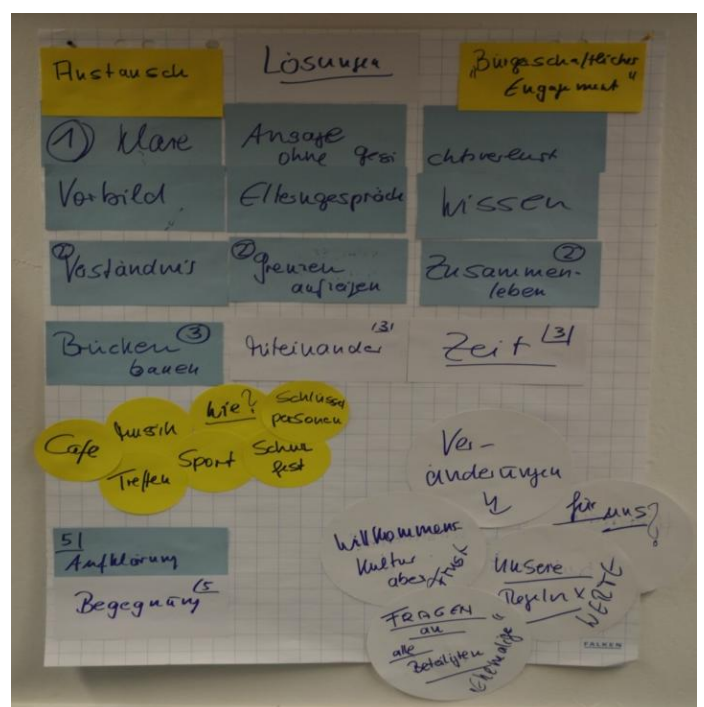 Austausch
Lösungen
"Bürgeschaftlicher
Engagement"
① Klare
Ansage
ohne gesi
chtsverlust
Vorbild
Elterngespräch
Wissen
② Verständnis
② Grenzen
aufzeigen
②
Zusammen-
leben
Brücken ③
bauen
/3/
Miteinander
Zeit /3/
Cafe
Musik
Wie?
Schlüssel
personen
Treffen
Sport
fest
Ver-
änderungen
für uns?
Willkommens
Kultur
aber
Unsere
Regeln x
WERTE
FRAGEN
an
alle
Beteiligten
"Ehemalige"
5/
Aufklärung
Begegnung /5
FALKEN